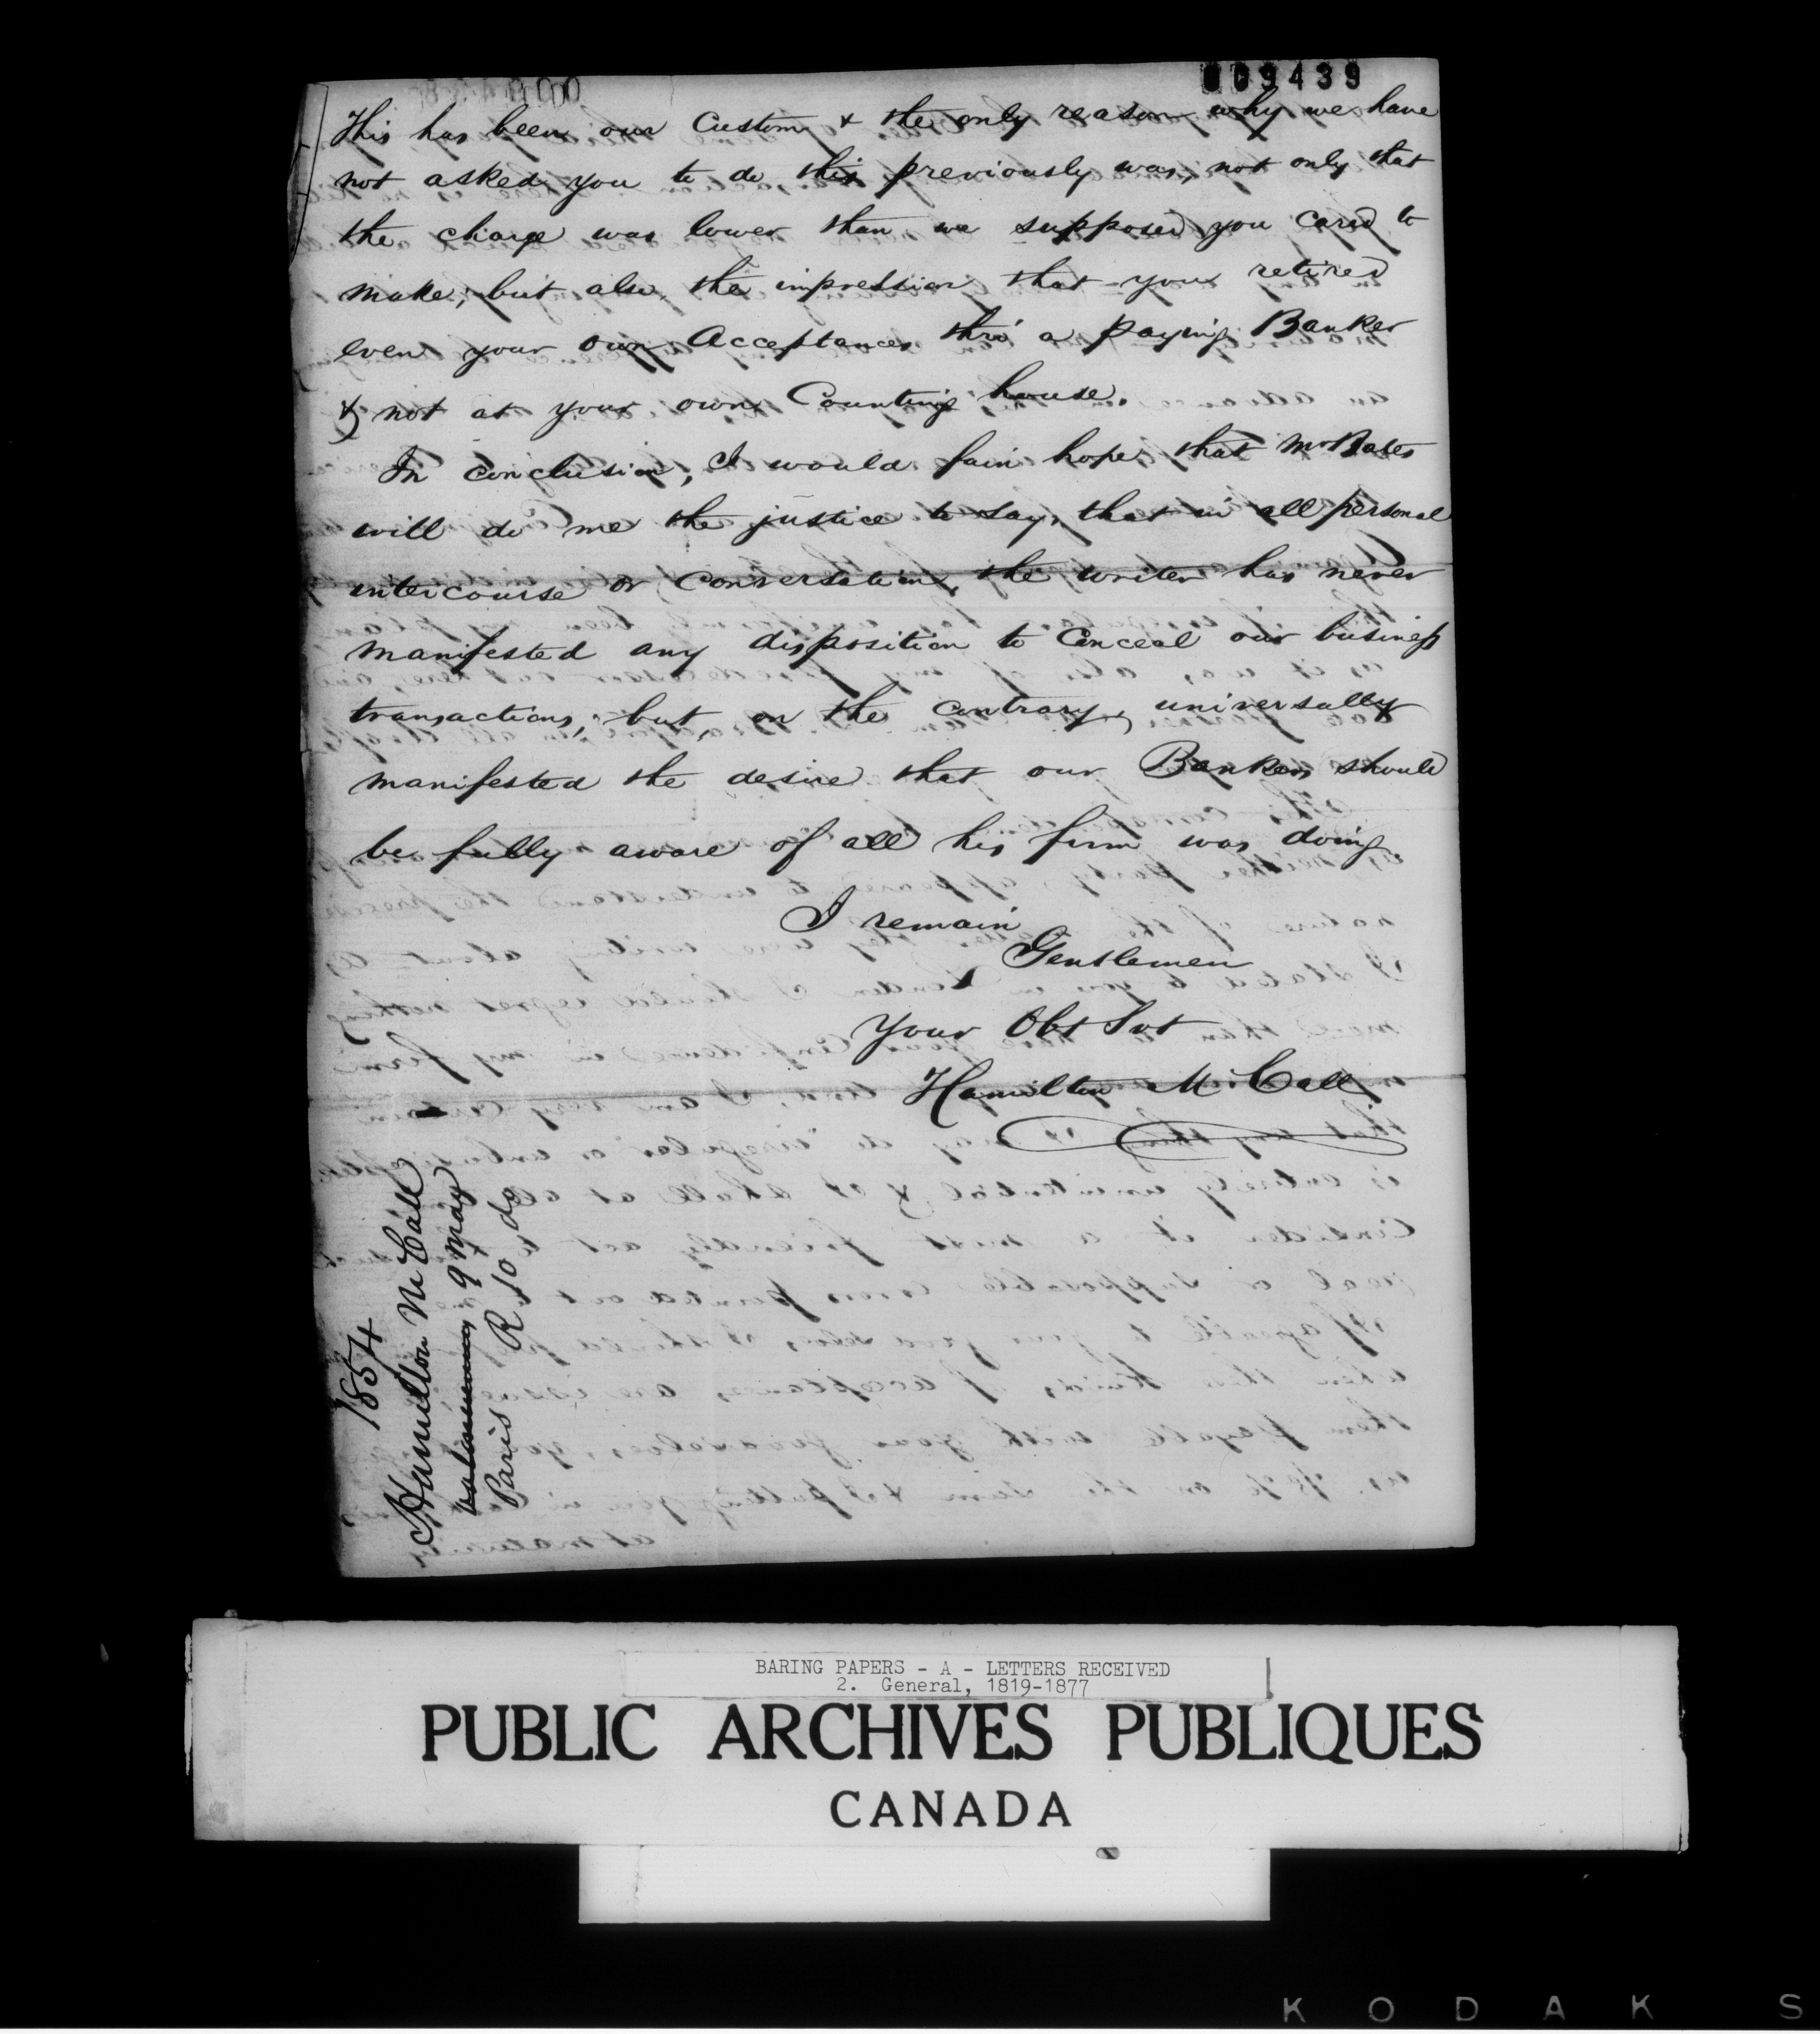 009439
This has been our Custom & the only reason why we have
not asked you to do this previously was, not only that
the charge was lower than we supposed you cared to
make, but also, the impression that you retired
even your own Acceptances thro' a paying Banker
& not at your own Counting house.
In conclusion, I would fain hope, that Mr Bates
will do me the justice to say, that in all personal
intercourse or Conversation, the writer has never
manifested any disposition to Conceal our business
transactions, but on the Contrary, universally
manifested the desire that our Bankers should
be fully aware of all his firm was doing
I remain
Gentlemen
Your Obt Svt
Hamilton McCall
1854
Hamilton McCall
9 May
Paris R 10 do
BARING PAPERS - A - LETTERS RECEIVED
2. General, 1819-1877
PUBLIC ARCHIVES PUBLIQUES
CANADA
KODAK S